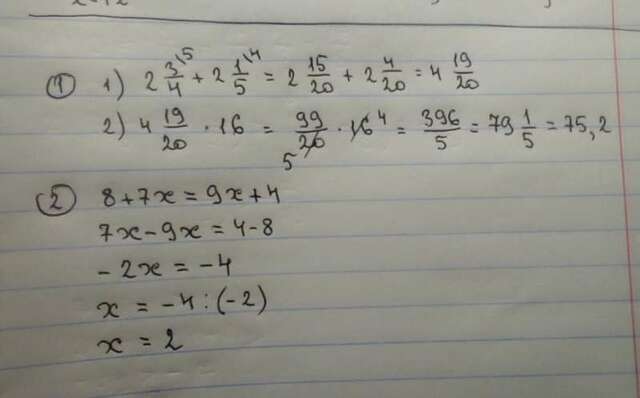 ① 1) 2 3/4 \5 + 2 1/5 \4 = 2 15/20 + 2 4/20 = 4 19/20
2) 4 19/20 · 16 = 99/20 · 16 4 = 396/5 = 79 1/5 = 75,2
5
② 8+7x = 9x+4
7x-9x = 4-8
-2x = -4
x = -4 : (-2)
x = 2